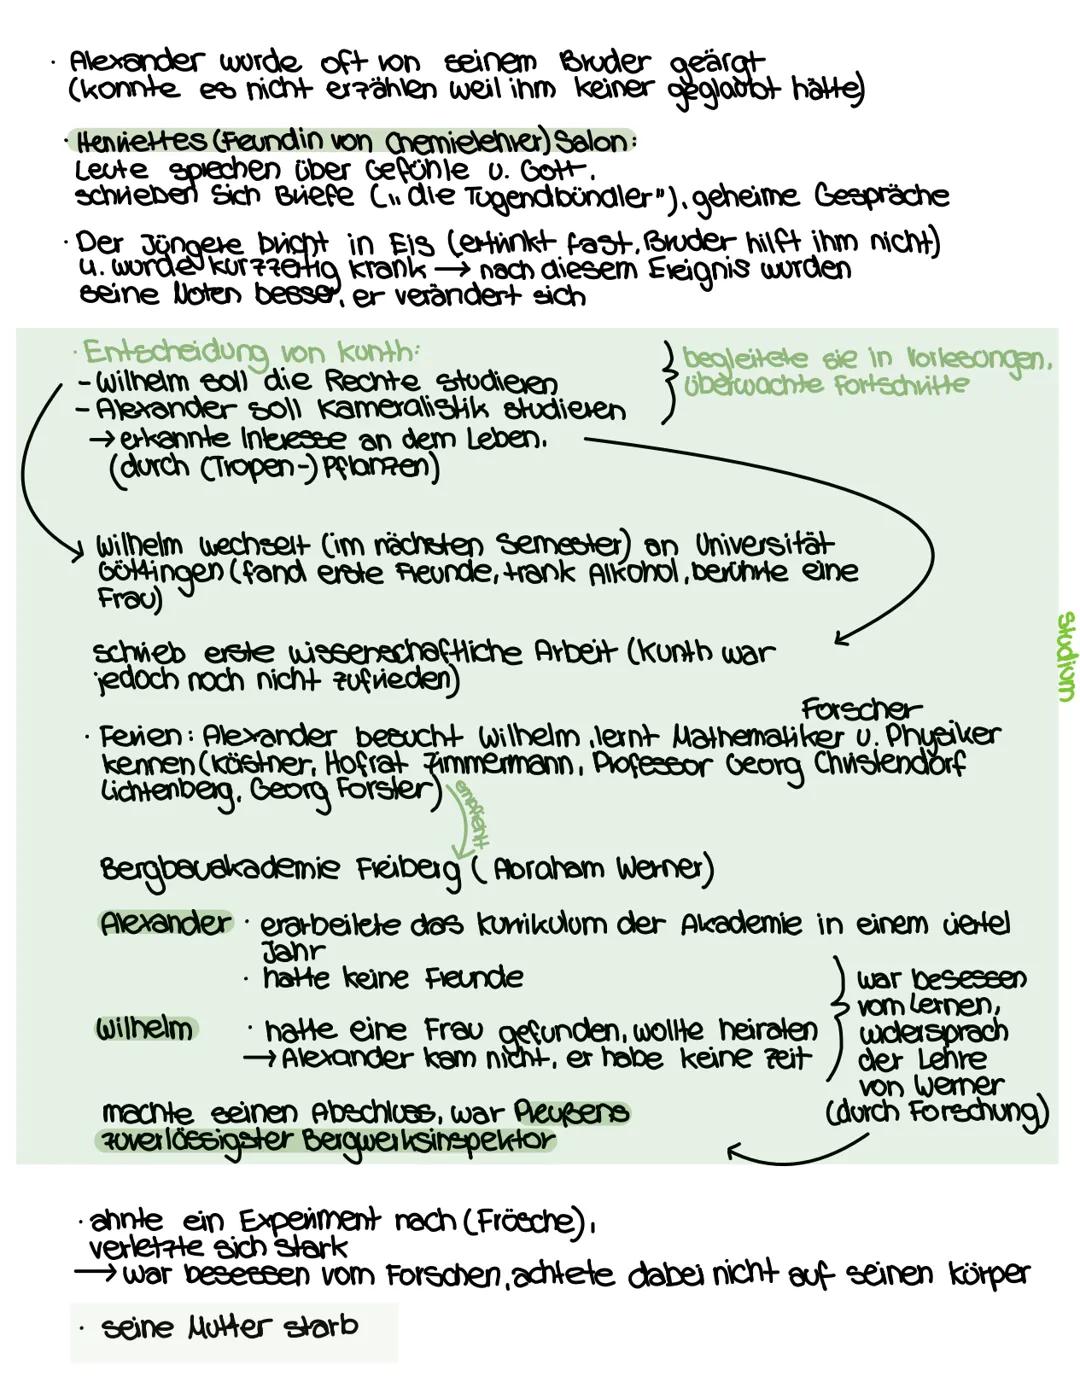 · Alexander wurde oft von seinem Bruder geärgt
(konnte es nicht erzählen weil ihm keiner geglaubt hätte)
· Henriettes (Feundin von Chemielehrer) Salon:
Leute sprechen über Gefühle u. Gott,
schrieben sich Briefe („die Tugendbündler"), geheime Gespräche
· Der Jüngere bricht in Eis (ertrinkt fast, Bruder hilft ihm nicht)
u. wurde kurzzeitig krank → nach diesem Ereignis wurden
seine Noten besser, er verändert sich
· Entscheidung von Kunth:
- Wilhelm soll die Rechte studieren
- Alexander soll Kameralistik studieren
→ erkannte Interesse an dem Leben,
(durch (Tropen-) Pflanzen)
begleitete sie in Vorlesungen,
überwachte Fortschritte
Wilhelm wechselt (im nächsten Semester) an Universität
Göttingen (fand erste Freunde, trank Alkohol, berührte eine
Frau)
schrieb erste wissenschaftliche Arbeit (Kunth war
jedoch noch nicht zufrieden)
Studium
Forscher
· Ferien: Alexander besucht Wilhelm, lernt Mathematiker u. Physiker
kennen (Kästner, Hofrat Zimmermann, Professor Georg Christendorf
Lichtenberg, Georg Forster)
empfiehlt
Bergbauakademie Freiberg (Abraham Werner)
Alexander · erarbeitete das Kurrikulum der Akademie in einem viertel
Jahr
· hatte keine Freunde
Wilhelm · hatte eine Frau gefunden, wollte heiraten
→ Alexander kam nicht, er habe keine Zeit
war besessen
vom Lernen,
widersprach
der Lehre
von Werner
(durch Forschung)
machte seinen Abschluss, war Preußens
zuverlässigster Bergwerksinspektor
· ahnte ein Experiment nach (Frösche),
verletzte sich stark
→ war besessen vom Forschen, achtete dabei nicht auf seinen Körper
· seine Mutter starb